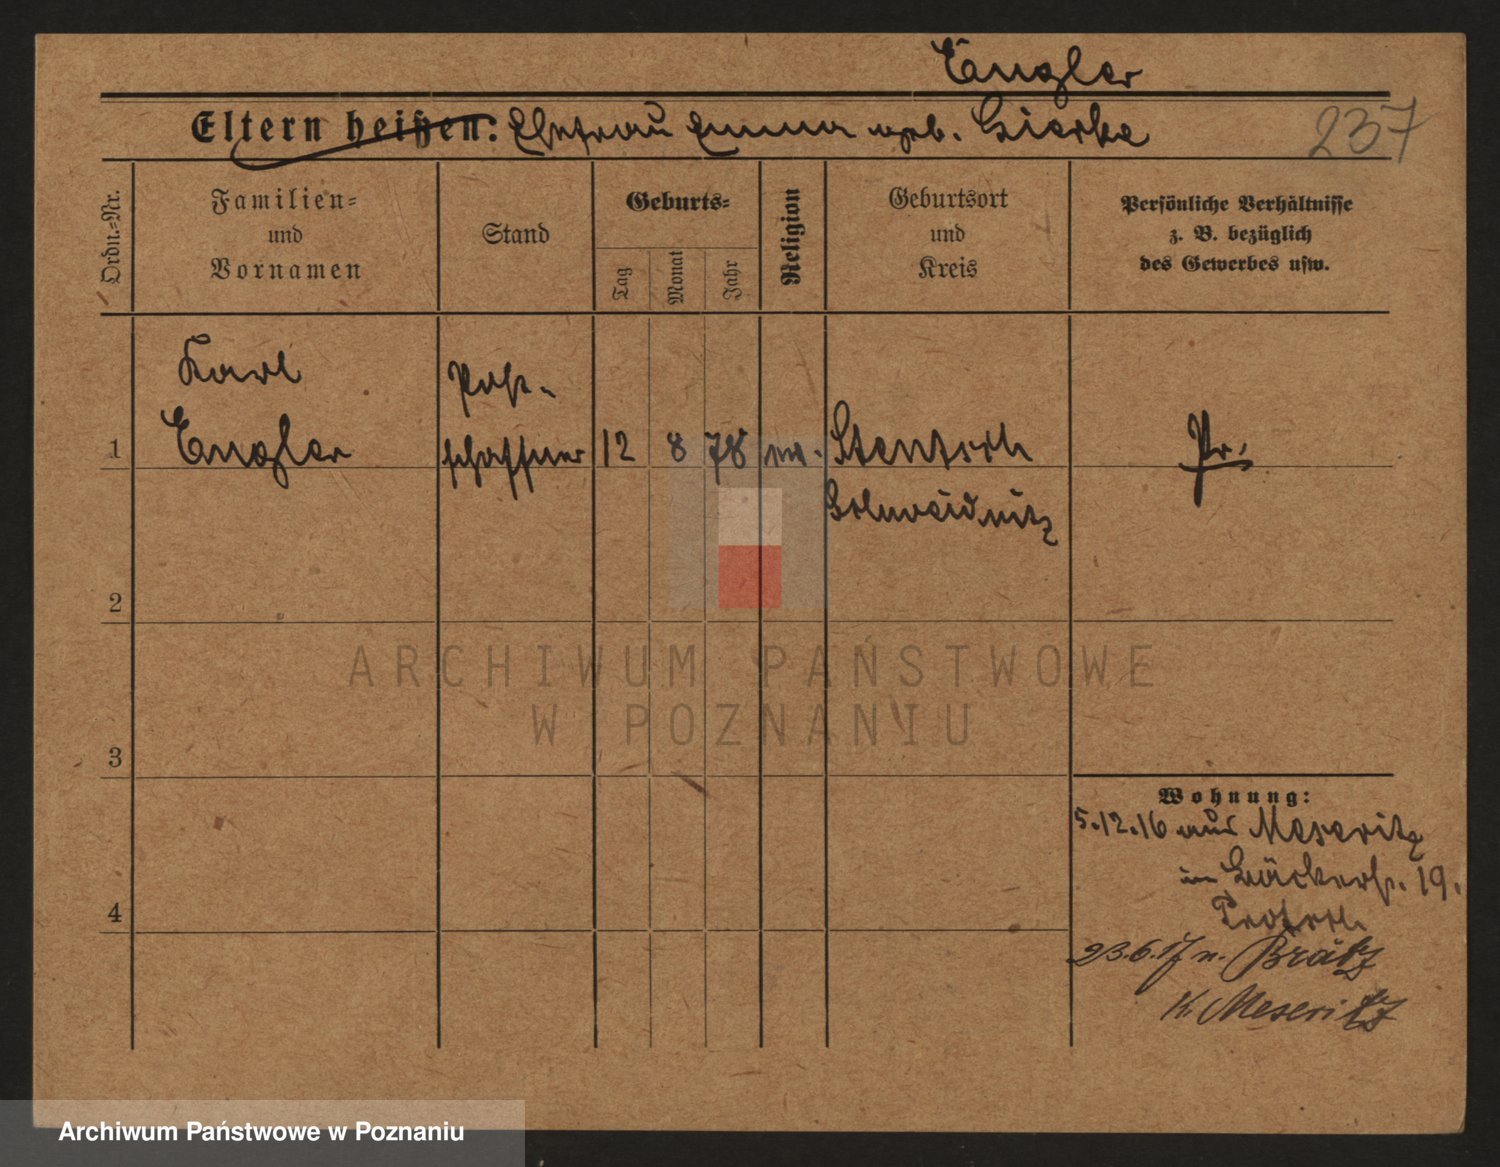 Engler
Eltern heißen: Ehefrau Emma geb. Gierke
237
Ordn.-Nr.
Familien-
und
Vornamen
Stand
Geburts-
Tag
Monat
Jahr
Religion
Geburtsort
und
Kreis
Persönliche Verhältnisse
z. B. bezüglich
des Gewerbes usw.
Karl
Post-
1 Engler schaffner 12 8 78 Pr.
Schweidnitz
2
3
Wohnung:
5.12.16 aus Meseritz
Bäckerstr. 19.
4
23.6.17 n. Brätz
K. Meseritz
ARCHIWUM PAŃSTWOWE
W POZNANIU
Archiwum Państwowe w Poznaniu